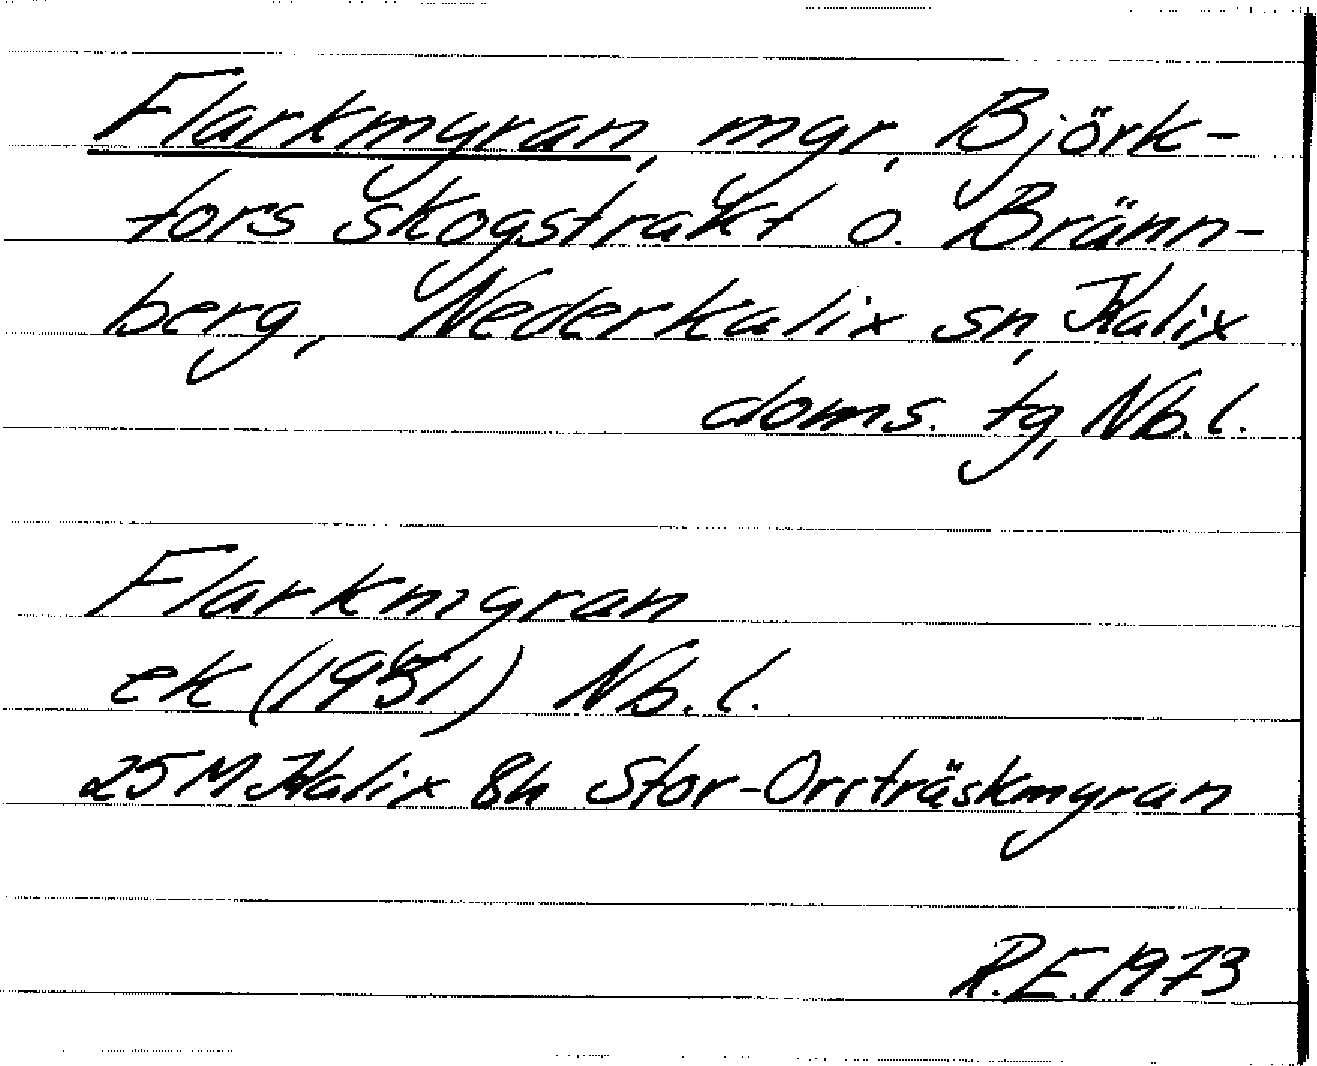 Flarkmyran, mgr, Björk-
fors skogstrakt o. Bränn-
berg, Nederkalix sn, Kalix
doms. tg, Nb.l.
Flarkmyran
ek (1951) Nb.l.
25 M Kalix 8h Stor-Orrträskmyran
R.E. 1973